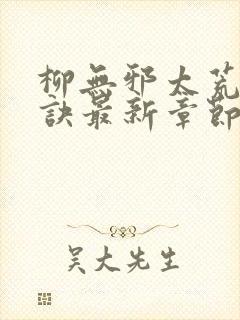 柳無邪太荒
訣最新章節
吴大先生